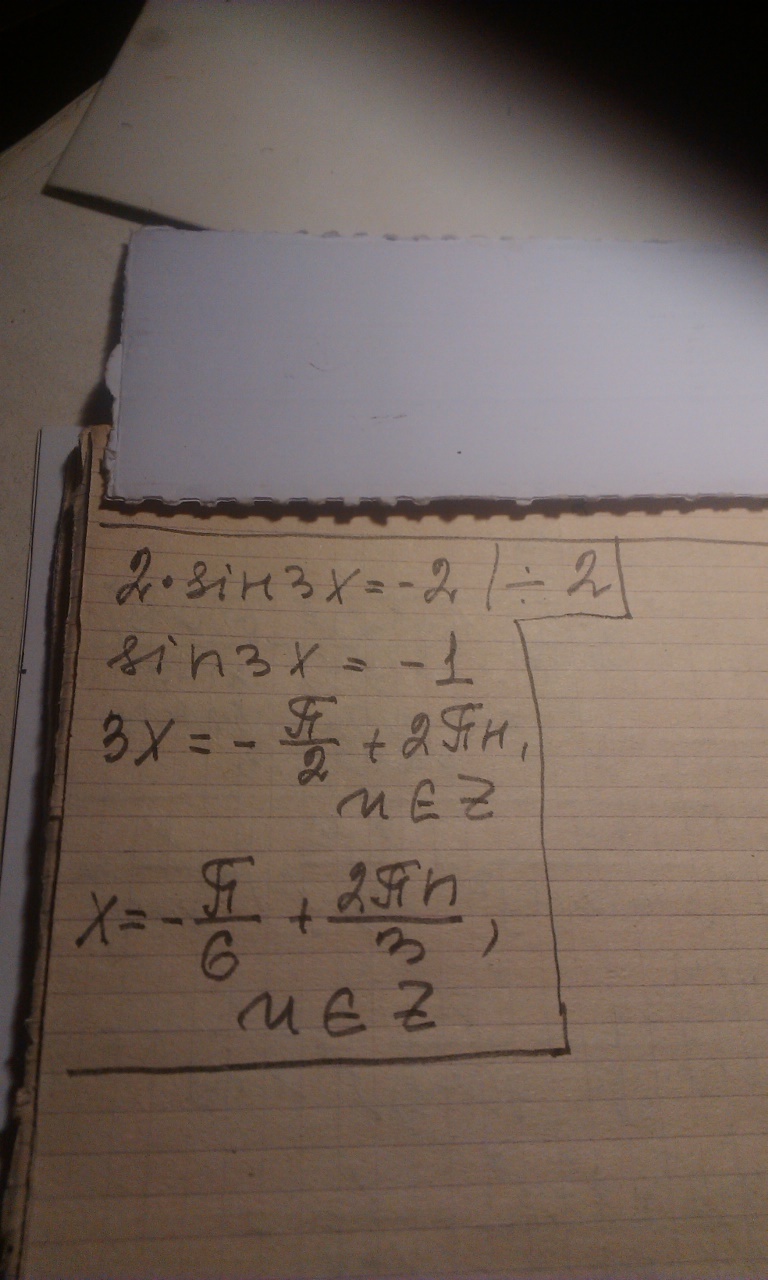 2·sin3x=-2 |÷2
sin3x = -1
3x = -π/2 + 2πn,
n∈Z
x = -π/6 + 2πn/3,
n∈Z